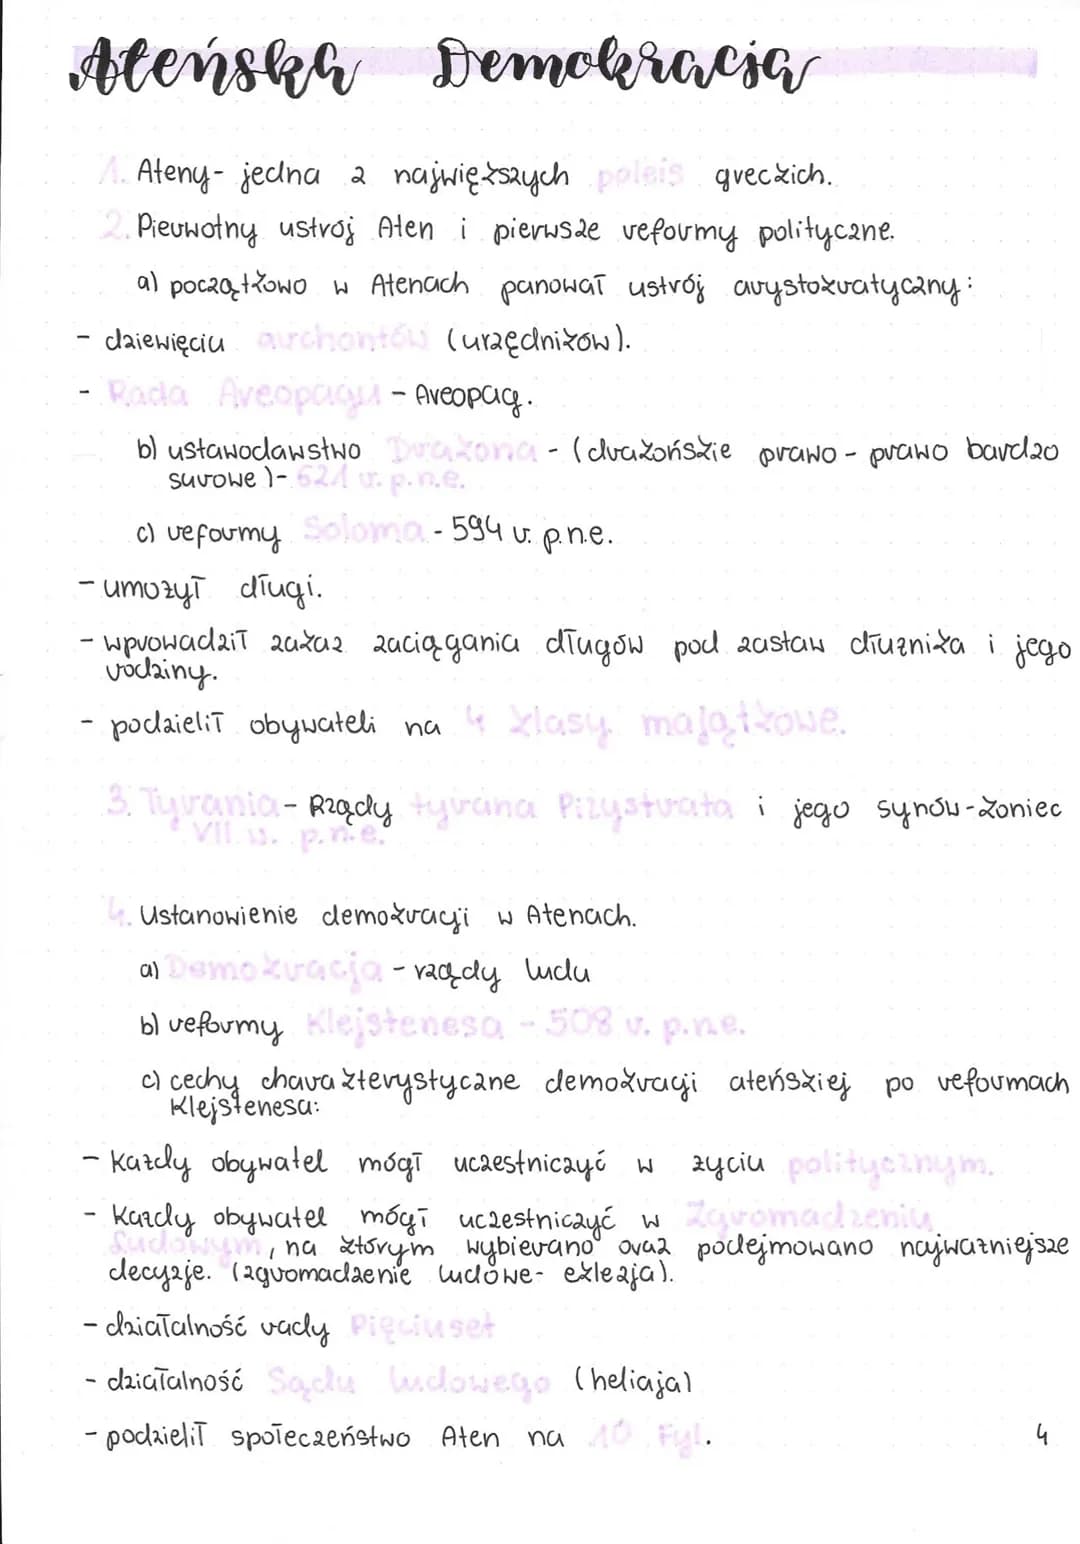 Ateńska Demokracja
1. Ateny - jedna z największych poleis greckich.
2. Pierwotny ustrój Aten i pierwsze reformy polityczne.
a) początkowo w Atenach panował ustrój arystokratyczny:
- dziewięciu archontów (urzędników).
- Rada Areopagu - Areopag.
b) ustawodawstwo Drakona - (drakońskie prawo - prawo bardzo
surowe) - 621 r. p.n.e.
c) reformy Soloma - 594 r. p.n.e.
- umożył długi.
- wprowadził zakaz zaciągania długów pod zastaw dłużnika i jego
rodziny.
- podzielił obywateli na 4 klasy majątkowe.
3. Tyrania - Rządy tyrana Pizystrata i jego synów - koniec
VII w. p.n.e.
4. Ustanowienie demokracji w Atenach.
a) Demokracja - rządy ludu
b) reformy Klejstenesa - 508 r. p.n.e.
c) cechy charakterystyczne demokracji ateńskiej po reformach
Klejstenesa:
- Każdy obywatel mógł uczestniczyć w życiu politycznym.
- Każdy obywatel mógł uczestniczyć w Zgromadzeniu
Ludowym, na którym wybierano oraz podejmowano najważniejsze
decyzje. (zgromadzenie ludowe - eklezja).
- działalność rady Pięciuset
- działalność Sądu ludowego (heliaja)
- podzielił społeczeństwo Aten na 10 Fyl.
4